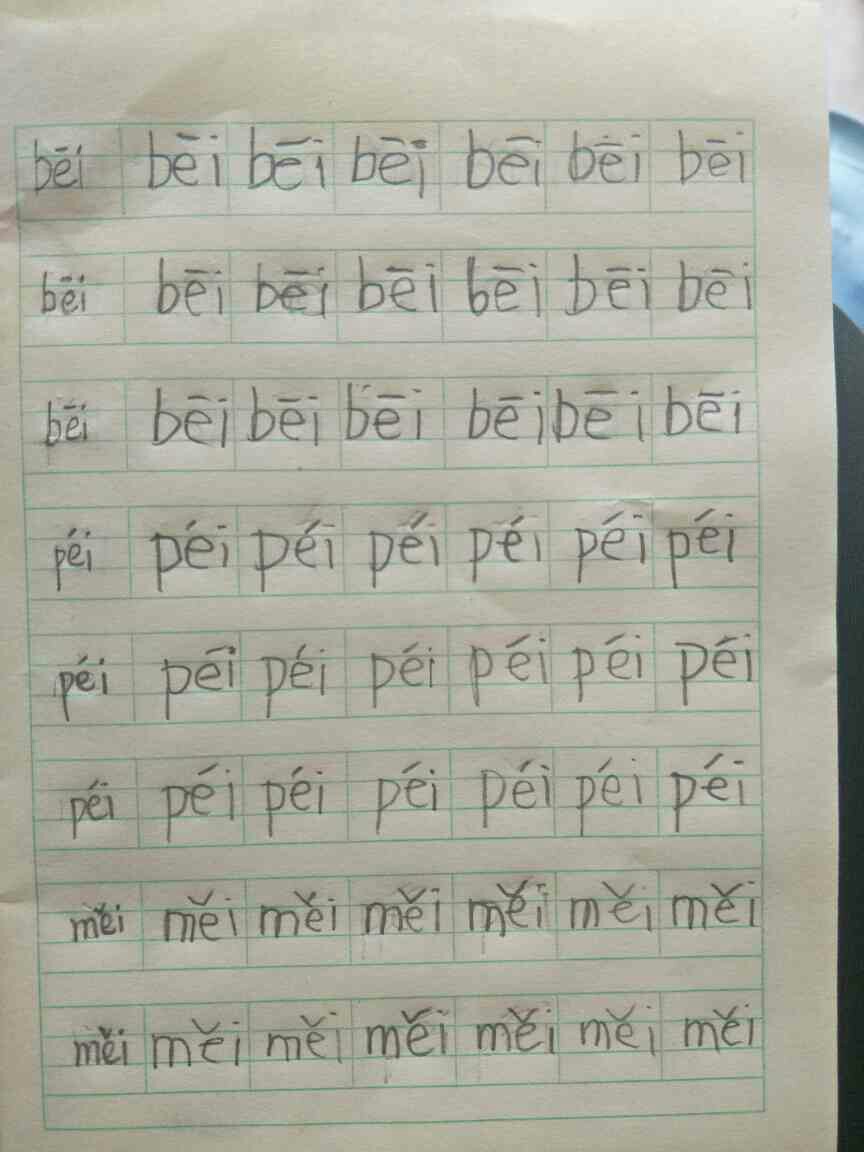 bēi bēi bēi bēi bēi bēi bēi
bēi bēi bēi bēi bēi bēi bēi
bēi bēi bēi bēi bēi bēi bēi
péi péi péi péi péi péi péi
péi péi péi péi péi péi péi
péi péi péi péi péi péi péi
měi měi měi měi měi měi měi
měi měi měi měi měi měi měi